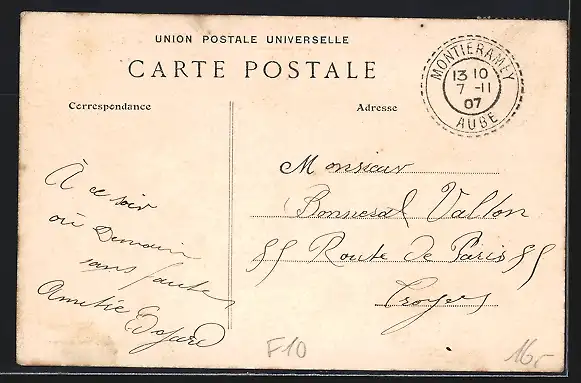 UNION POSTALE UNIVERSELLE
CARTE POSTALE
Correspondance
Adresse
MONTIERAMEY
13 10
7 -11
07
AUBE
Monsieur
Vallon
55 Route de Paris 55
Troyes
À ce soir
où Demain
sans faute
Amitié
F10
16,-